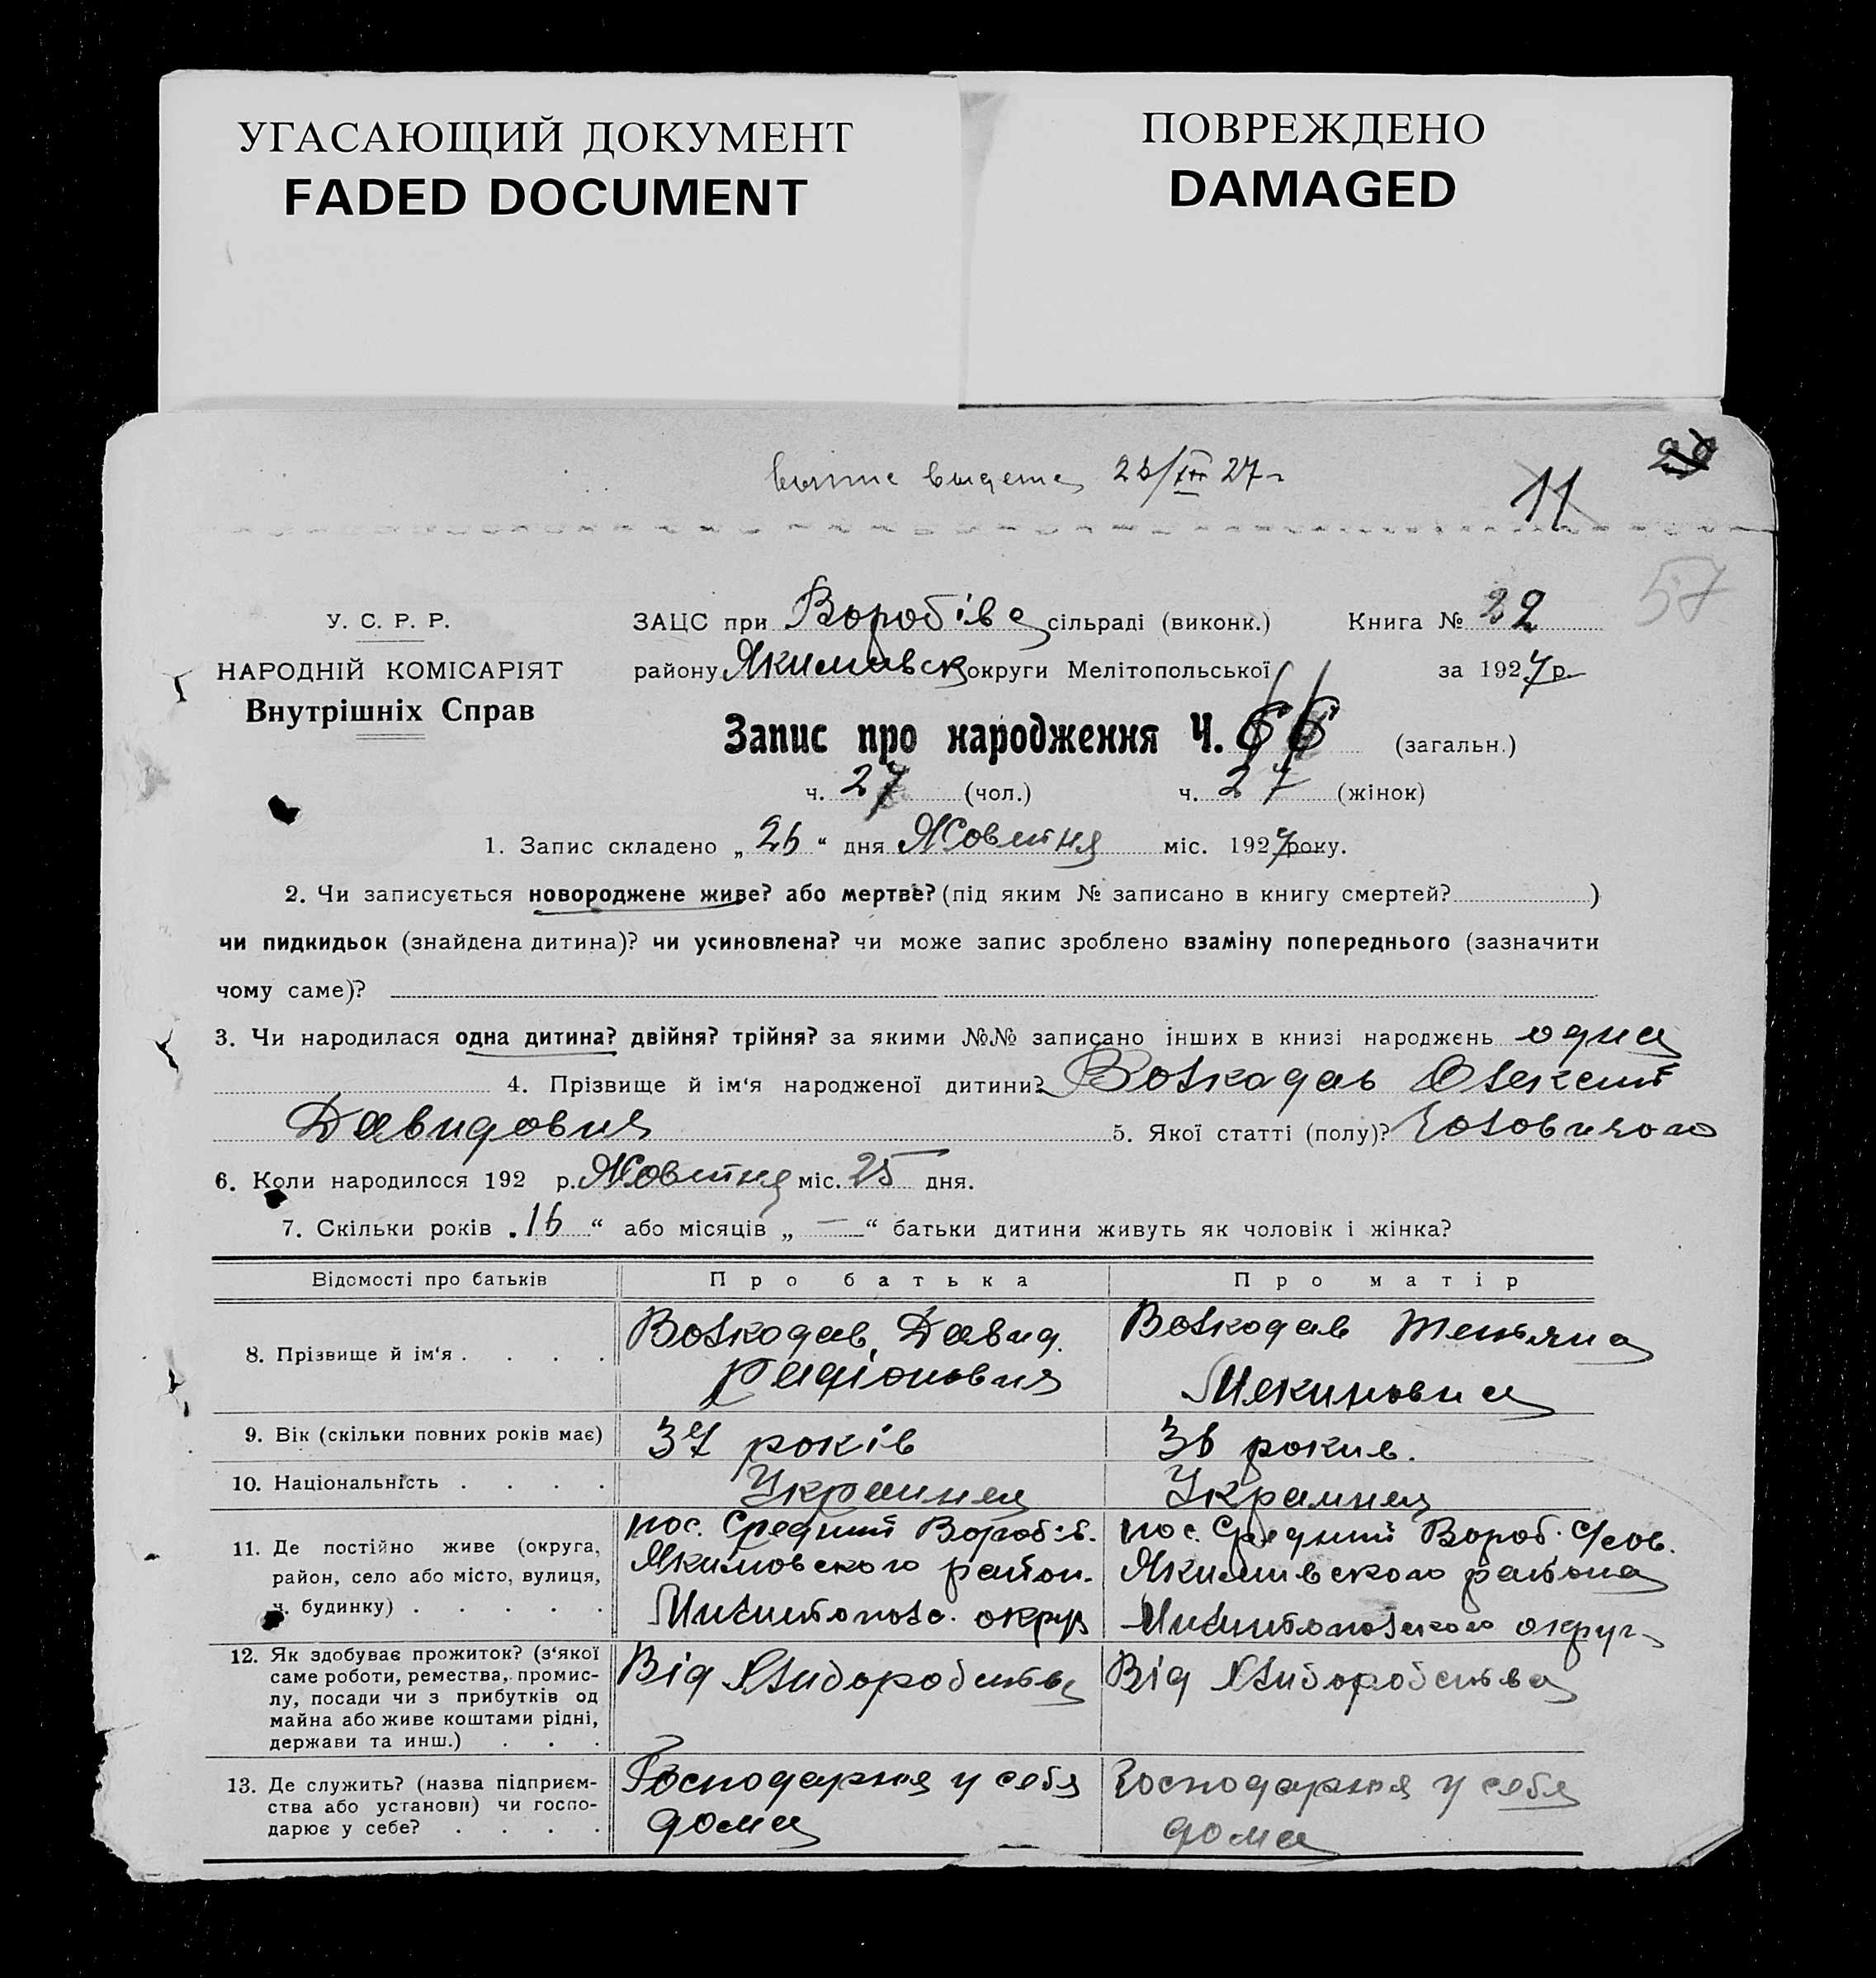 УГАСАЮЩИЙ ДОКУМЕНТ
FADED DOCUMENT
ПОВРЕЖДЕНО
DAMAGED
27
11
57
У. С. Р. Р.
НАРОДНІЙ КОМІСАРІЯТ
Внутрішніх Справ
ЗАЦС при Воробівс сільраді (виконк.) Книга № 22
району Якимавск округи Мелітопольської за 1927 р.
Запис про народження Ч. 66 (загальн.)
ч. 27 (чол.) ч. 27 (жінок)
1. Запис складено „ 26 “ дня Жовтня міс. 1927 року.
2. Чи записується новороджене живе? або мертве? (під яким № записано в книгу смертей? )
чи пидкидьок (знайдена дитина)? чи усиновлена? чи може запис зроблено взаміну попереднього (зазначити
чому саме)?
3. Чи народилася одна дитина? двійня? трійня? за якими №№ записано інших в книзі народжень одна
4. Прізвище й ім‘я народженої дитини? Волкодав Олексий
Давидович 5. Якої статті (полу)? Чоловичого
6. Коли народилося 192 р. Жовтня міс. 25 дня.
7. Скільки років „ 16 “ або місяців „ — “ батьки дитини живуть як чоловік і жінка?
Відомості про батьків Про батька Про матір
8. Прізвище й ім‘я . . . . Волкодав, Давид. Радіонович Волкодав Тетьяна
9. Вік (скільки повних років має) 37 років 36 рокив.
10. Національність . . . . Украинец Украинец
11. Де постійно живе (округа,
район, село або місто, вулиця,
ч. будинку) . . . . .
пос. Средний Воробів.
Якимовского район.
округ
пос. Средний Вороб. с/сов.
района
12. Як здобуває прожиток? (з‘якої
саме роботи, ремества, промис-
лу, посади чи з прибутків од
майна або живе коштами рідні,
держави та инш.) . . .
Від Хлиборобства
Від Хлиборобства
13. Де служить? (назва підприєм-
ства або установи) чи госпо-
дарює у себе? . . . .
Господарюя у себя
дома
Господарюя у себя
дома